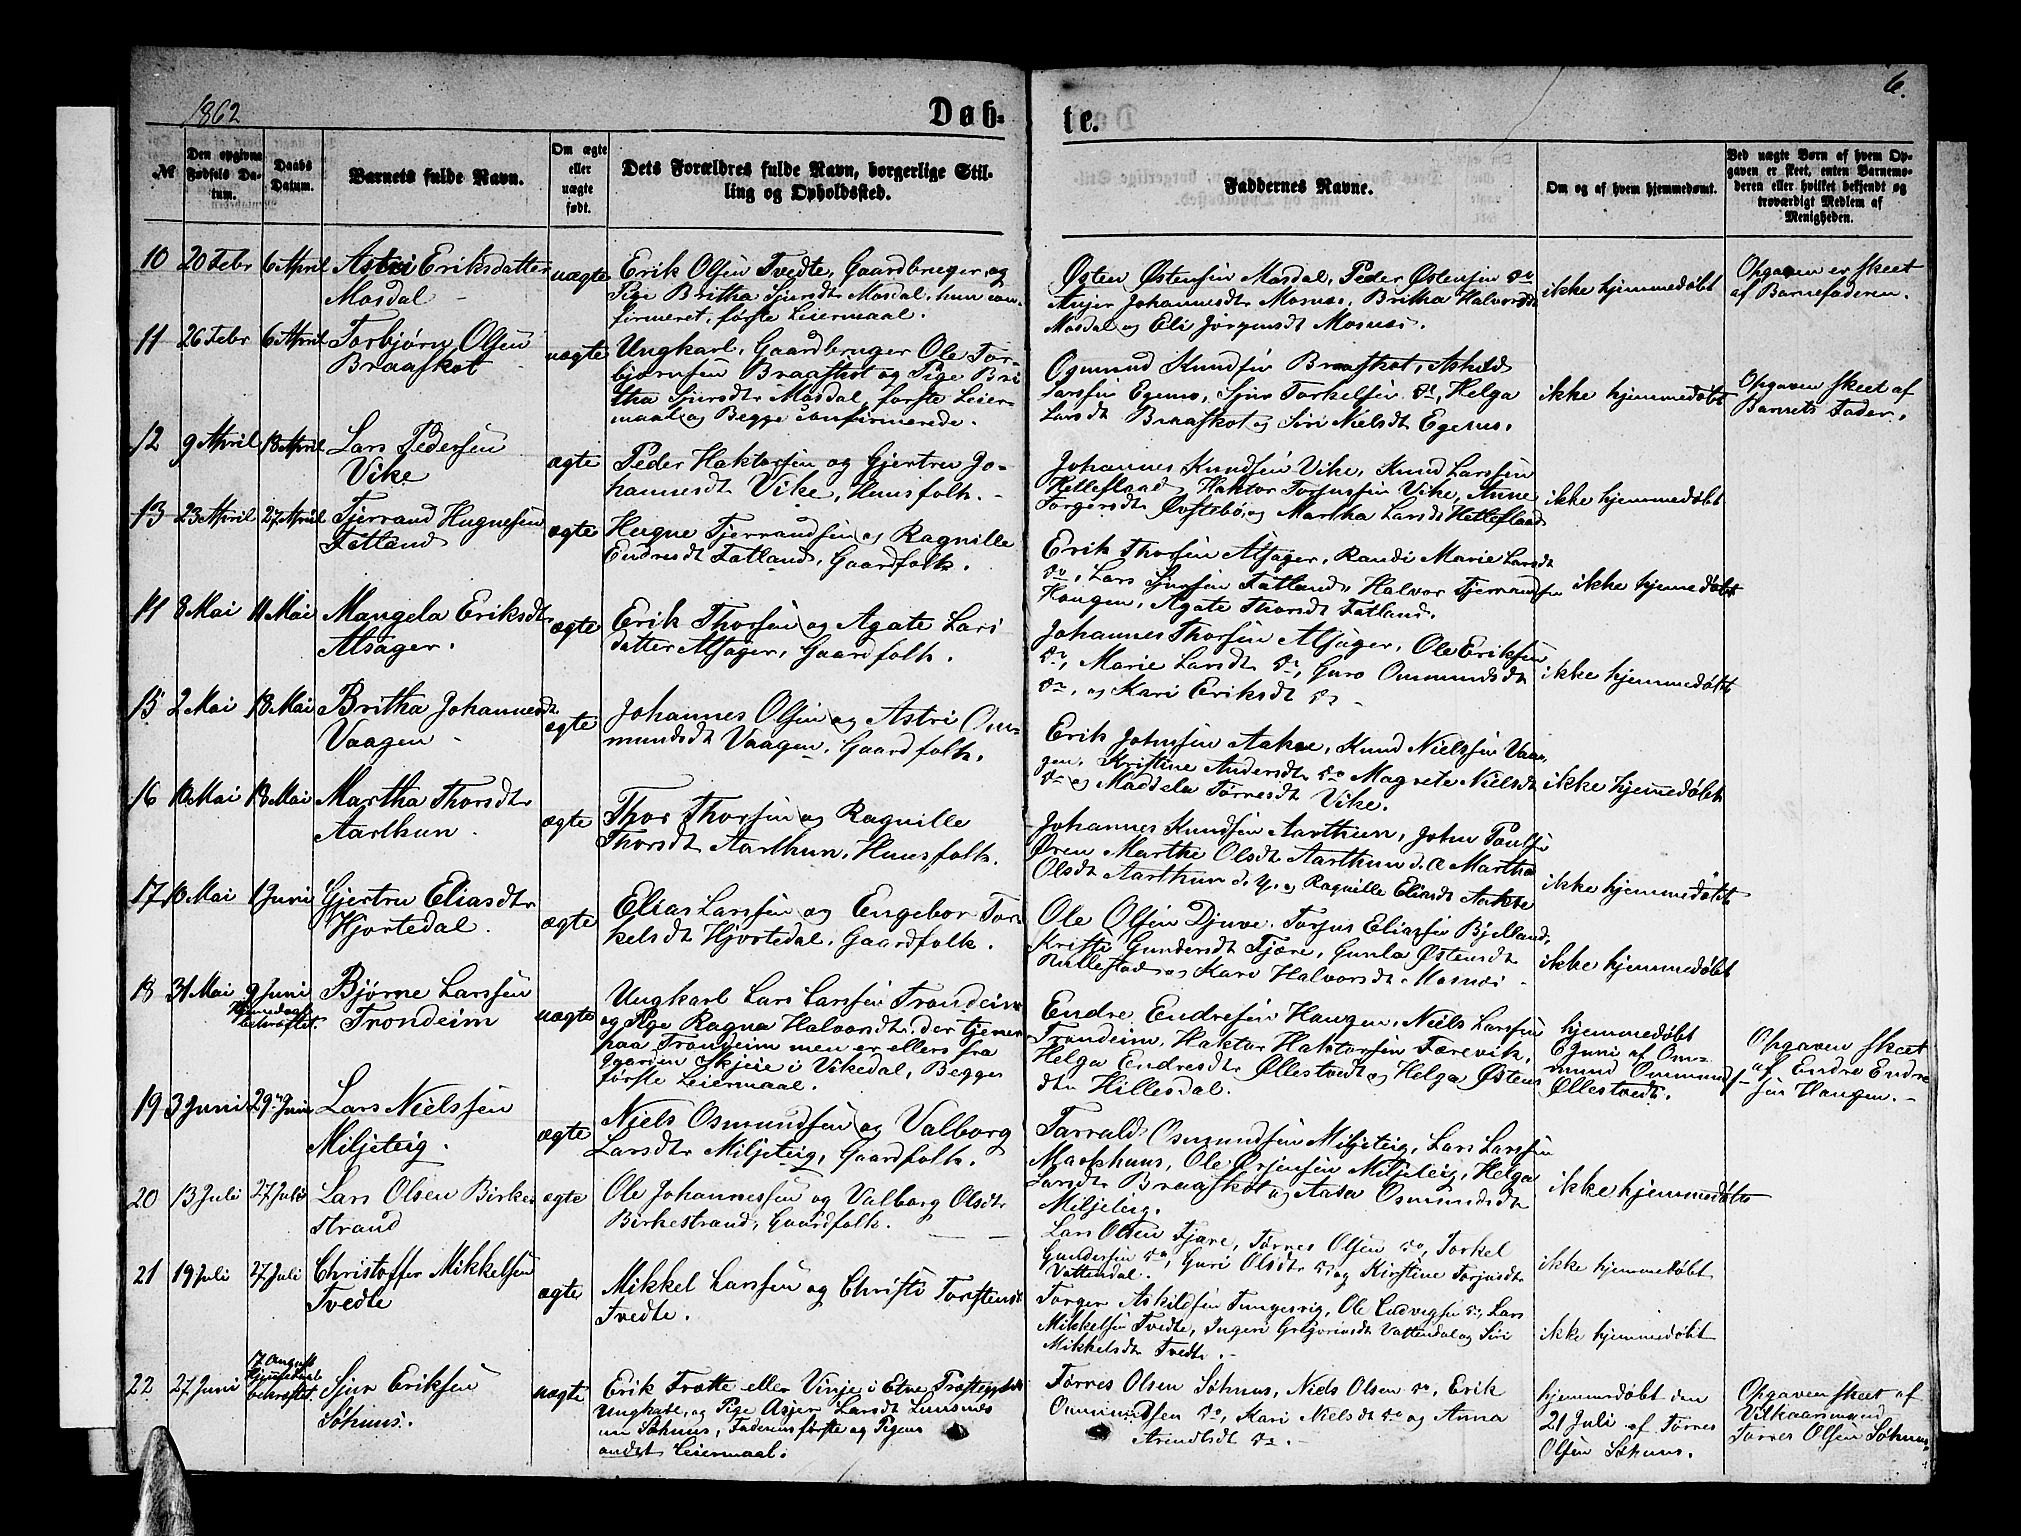 1862
Døb-
te.
6.
№
Den opgivne Fødsels Da-
tum.
Daabs
Datum.
Barnets fulde Navn.
Om ægte
eller
uægte
født.
Dets Forældres fulde Navn, borgerlige Stil-
ling og Opholdssted.
Faddernes Navne.
Om og af hvem hjemmedømt.
Ved uægte Børn af hvem Op-
gaven er skeet, enten Barnemo-
deren eller hvilket bekjendt og
troværdigt Medlem af
Menigheden.
10 20 Febr 6 April Astri Eriksdatter
Mosdal
uægte
Erik Olsen Tvedte, Gaardbruger, og
Pige Britha Sjursdtr Mosdal, hun con-
firmeret, første Leiermaal.
Østen Østensen Mosdal, Peder Østensen do
Anger Johannesdtr Mosnæs, Britha Halvorsdtr
Mosdal og Eli Jørgensdt Mosnæs.
ikke hjemmedøbt
Opgaven er skeet
af Barnefaderen.
11 26 Febr 6 April Torbjørn Olsen
Braaskot
uægte
Ungkarl, Gaardbruger Ole Tor-
bjørnsen Braaskot og Pige Bri
tha Sjursdtr Mosdal, første Leier-
maal og Begge confirmerede.
Ogmund Knudsen Braaskot, Askild
Larssen Egenes, Sjur Torkelsen do, Helga
Larsdt Braaskot og Siri Nielsdt Egenes.
ikke hjemmedøbt
Opgaven skeet af
Barnets Fader.
12 9 April 18 April Lars Pedersen
Vike
ægte
Peder Haktorsen og Gjertru Jo-
hannesdt Vike, Huusfolk.
Johannes Knudsen Vike, Knud Larssen
Hetleflaad, Haktor Torjussen Vike, Anne
Torgersdtr Øvstebø, og Martha Larsdt Hetleflaad
ikke hjemmedøbt
13 23 April 27 April Tjerrand Hugnesen
Fatland
ægte
Hugne Tjerrandsen og Ragnille
Endresdt Fatland, Gaardfolk.
Erik Thorsen Alsager, Randi Marie Larsdt
do, Lars Sjursen Fatland, Halvor Tjerrandsen
Haugen, Agate Thorsdt Fatland.
ikke hjemmedøbt
14 8 Mai 11 Mai Mangela Eriksdtr
Alsager.
ægte
Erik Thorsen og Agate Lars
datter Alsager, Gaardfolk.
Johannes Thorsen Alsager, Ole Eriksen
do, Marie Larsdt do, Guro Ommundsdt
do, og Kari Eriksdt do
ikke hjemmedøbt
15 2 Mai 18 Mai Britha Johannesdtr
Vaagen
ægte
Johannes Olsen og Astri Om-
mundsdt Vaagen, Gaardfolk.
Erik Johnsen Aakre, Knud Nielssen Vaa-
gen, Kristine Andersdt do Magrete Nielsdt
do og Maddela Tørresdt Vike.
ikke hjemmedøbt
16 10 Mai 18 Mai Martha Thorsdtr
Aarthun.
ægte
Thor Thorsen og Ragnille
Thorsdt Aarthun, Huusfolk.
Johannes Knudsen Aarthun, John Poulsen
Øren Marthe Olsdt Aarthun d. Æ Martha
Olsdt Aarthun d. y. og Ragnille Eliasdt Aakre
ikke hjemmedøbt
17 10 Mai 1 Juni Gjertru Eliasdtr
Hjortedal.
ægte
Elias Larssen og Engebor Tor-
kelsdt Hjortedal, Gaardfolk.
Ole Olsen Djuve, Torjus Eliassen Bjelland,
Kristi Gundersdt Fjære, Gunla Østensdt
Rullestad og Kari Halvorsdt Mosnæs
ikke hjemmedøbt
18 31 Mai 9 Juni
Hjemmedaab
bekræftet.
Bjørne Larssen
Trondeim
uægte
Ungkarl Lars Larssen Trondeim
og Pige Ragna Halvorsdtr, der tjener
paa Trondeim men er ellers fra
Gaarden Skjeie i Vikedal, Begges
første Leiermaal.
Endre Endresen Haugen, Niels Larssen
Trondeim, Haktor Haktorsen Færevik,
Helga Endresdtr Øllestvedt og Helga Østens
dtr Hillesdal.
hjemmedøbt
6 Juni af Om-
mund Ommunds-
Øllestvedt.
Opgaven skeet
af Endre Endre
sen Haugen.
19 3 Juni 29 Juni Lars Nielssen
Miljeteig.
ægte
Niels Osmundsen og Valborg
Larsdtr Miljeteig, Gaardfolk.
Tarrald Osmundsen Miljeteig, Lars Larssen
Markhuus, Ole Ørjensen Miljeteig, Helga
Larsdtr Braaskot og Aasa Osmundsdt
Miljeteig.
ikke hjemmedøbt
20 13 Juli 27 Juli Lars Olsen Birke
strand
ægte
Ole Johannessen og Valborg Olsdtr
Birkestrand, Gaardfolk.
Lars Olsen Fjære, Tørres Olsen do, Torkel
Gundersen do, Guri Olsdtr do og Kirstine Torjusdt
Vattendal.
ikke hjemmedøbt
21 19 Juli 27 Juli Christoffer Mikkelsen
Tvedte
ægte
Mikkel Larssen og Christi Torstensdt
Tvedte.
Torger Askildsen Tungesvig, Ole Ludvigsen do, Lars
Mikkelsen Tvedte, Ingeri Gregoriusdt Vattendal og Siri
Mikkelsdt Tvedte.
ikke hjemmedøbt
22 27 Juni 17 August
Hjemmedaab
bekræftet.
Sjur Eriksen
Søhuus.
uægte
Erik Trætte eller Vinje i Etne Præstegjeld
Ungkarl, og Pige Asjer Larsdt Lunsnæs
nu Søhuus, Faderens første og Pigens
andet Leiermaal.
Tørres Olsen Søhuus, Niels Olsen do, Erik
Ommundsen do, Kari Nielsdt do og Anna
Arendtsdt do.
hjemmedøbt den
21 Juli af Tørres
Olsen Søhuus.
Opgaven skeet af
Vitkaarsmand
Tørres Olsen Søhuus.